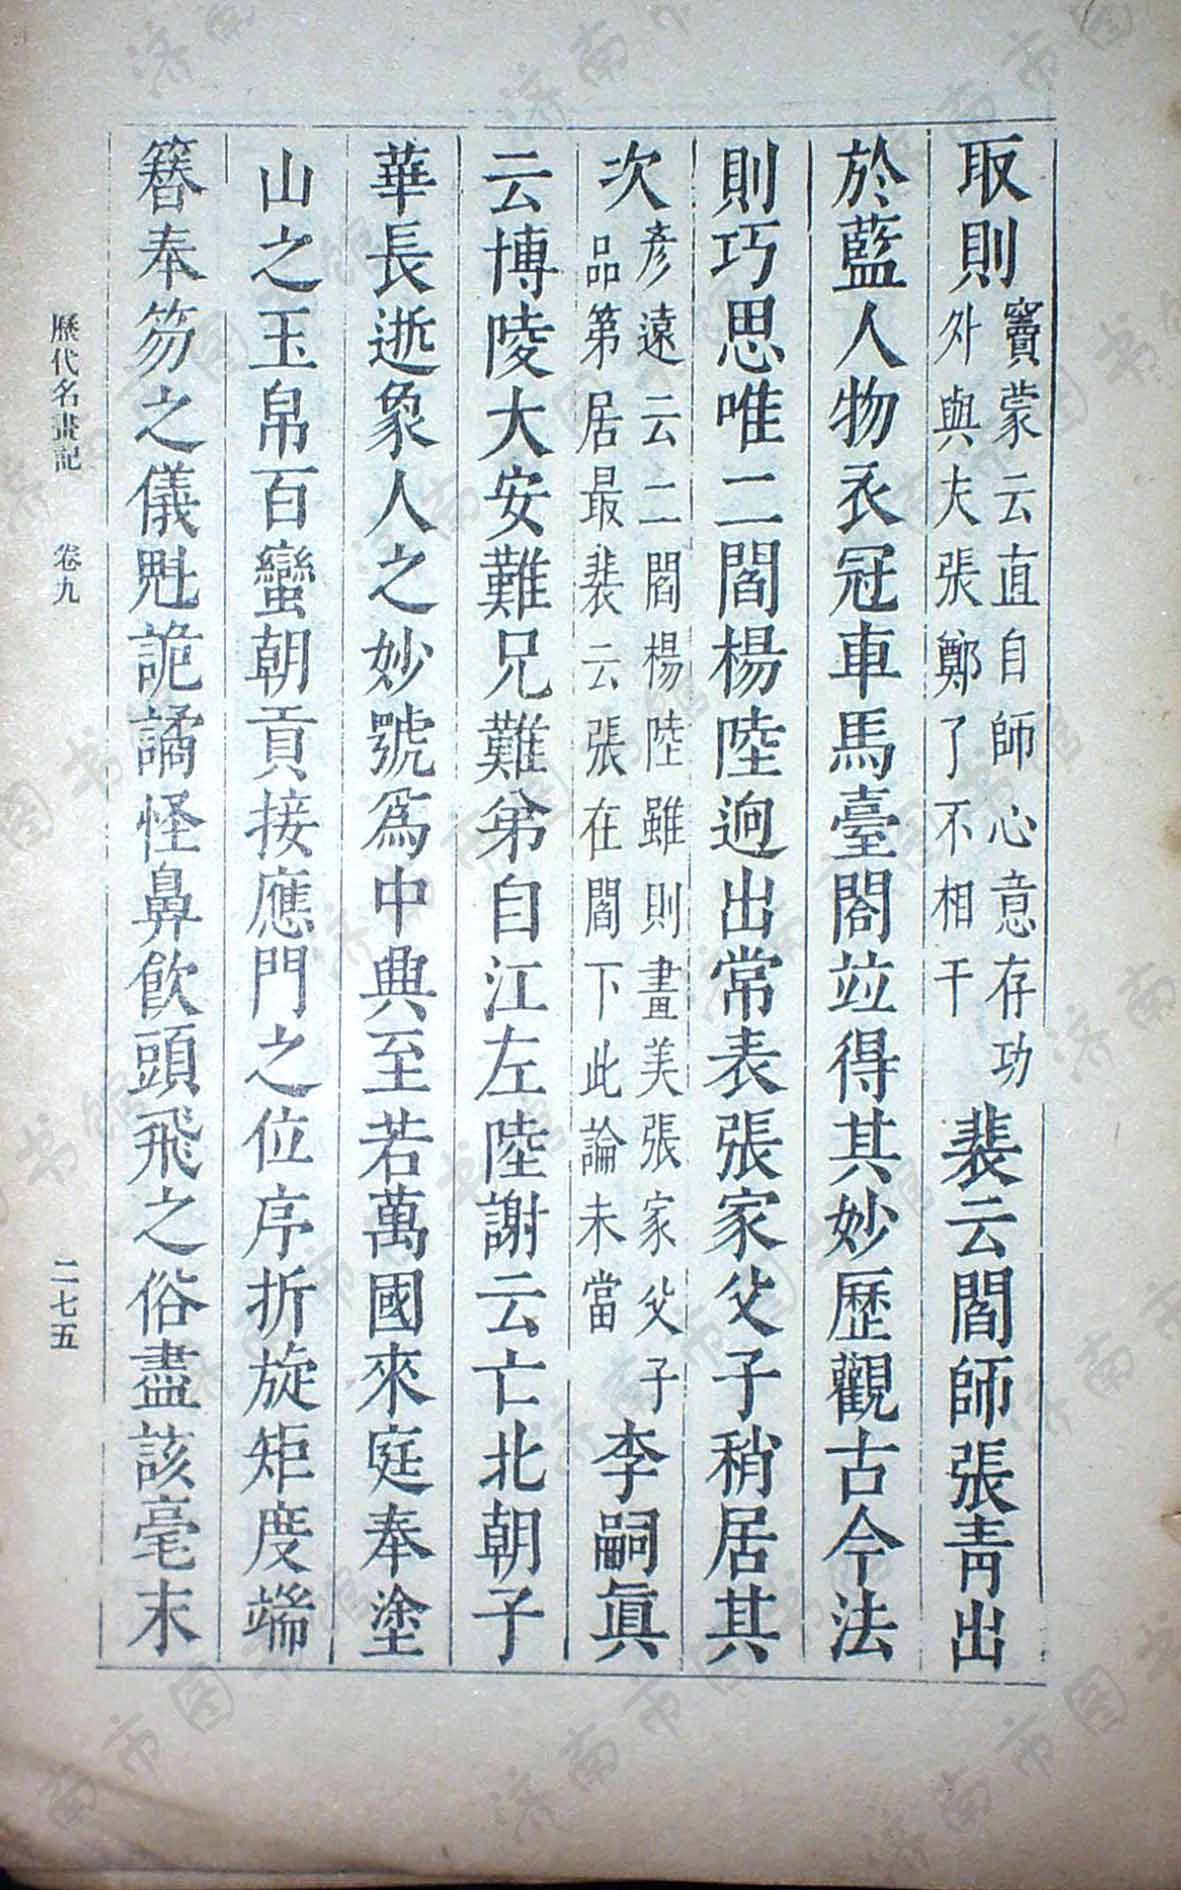 取則竇蒙云直自師心意存功外與夫張鄭了不相干裴云閻師張青出
於藍人物衣冠車馬臺閣竝得其妙歷觀古今法
則巧思唯二閻楊陸逈出常表張家父子稍居其
次彥遠云二閻楊陸雖則畫美張家父子品第居最裴云張在閻下此論未當李嗣眞
云博陵大安難兄難弟自江左陸謝云亡北朝子
華長逝象人之妙號爲中典至若萬國來庭奉塗
山之玉帛百蠻朝貢接應門之位序折旋矩度端
簪奉笏之儀魁詭譎怪鼻飮頭飛之俗盡該毫末
歷代名畫記 卷九 二七五
济南市图书馆